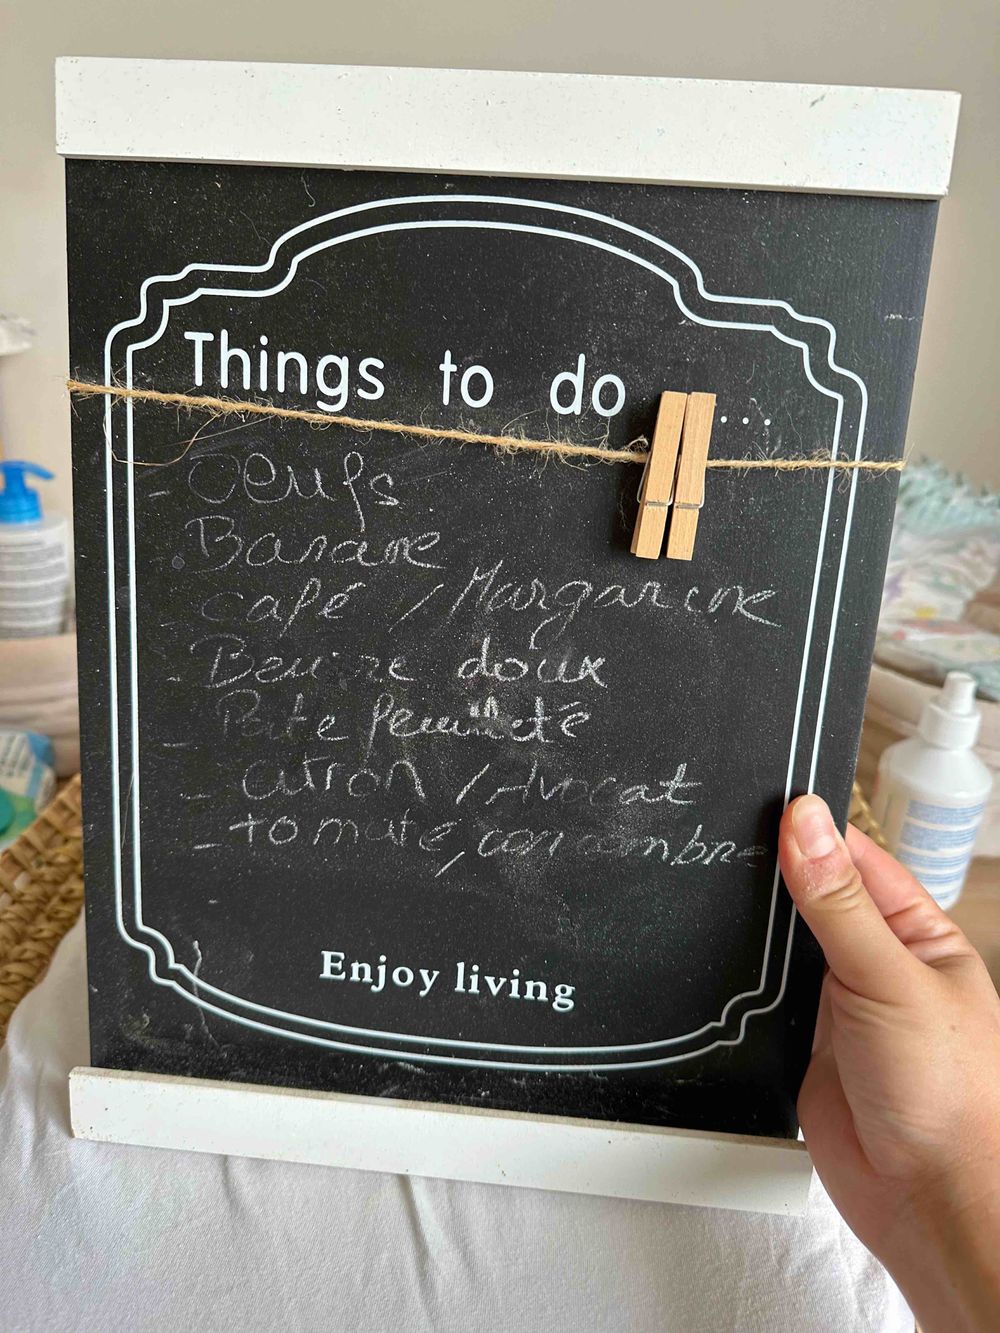 Things to do ...
- Oeufs
- Banane
café / Margarine
- Beurre doux
- Pate feuilleté
- citron / Avocat
- tomate, concombre
Enjoy living